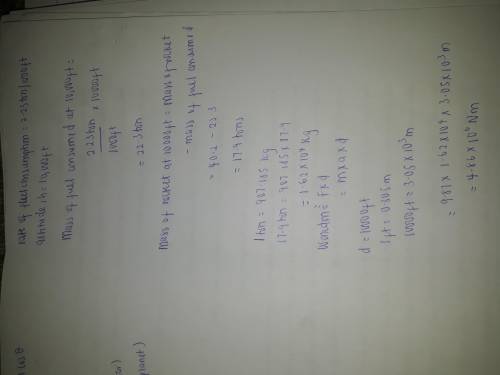 rate of fuel consumption = 2.23 ton/1000ft
altitude, h = 10,000ft
Mass of fuel consumed at 10,000ft =
2.23ton x 10000ft
1000ft
= 22.3ton
Mass of rocket at 10000ft = Mass of rocket
- mass of fuel consumed
= 40.2 - 22.3
= 17.9 tons
1 ton = 907.185 kg
17.9 ton = 907.185 x 17.9
= 1.62x10⁴ kg
Workdone = f x d
= m x a x d
d = 10000ft
1ft = 0.305m
10000ft = 3.05 x 10³m
= 9.81 x 1.62x10⁴ x 3.05x10³m
= 4.86 x 10⁸ Nm
cos θ
planet)